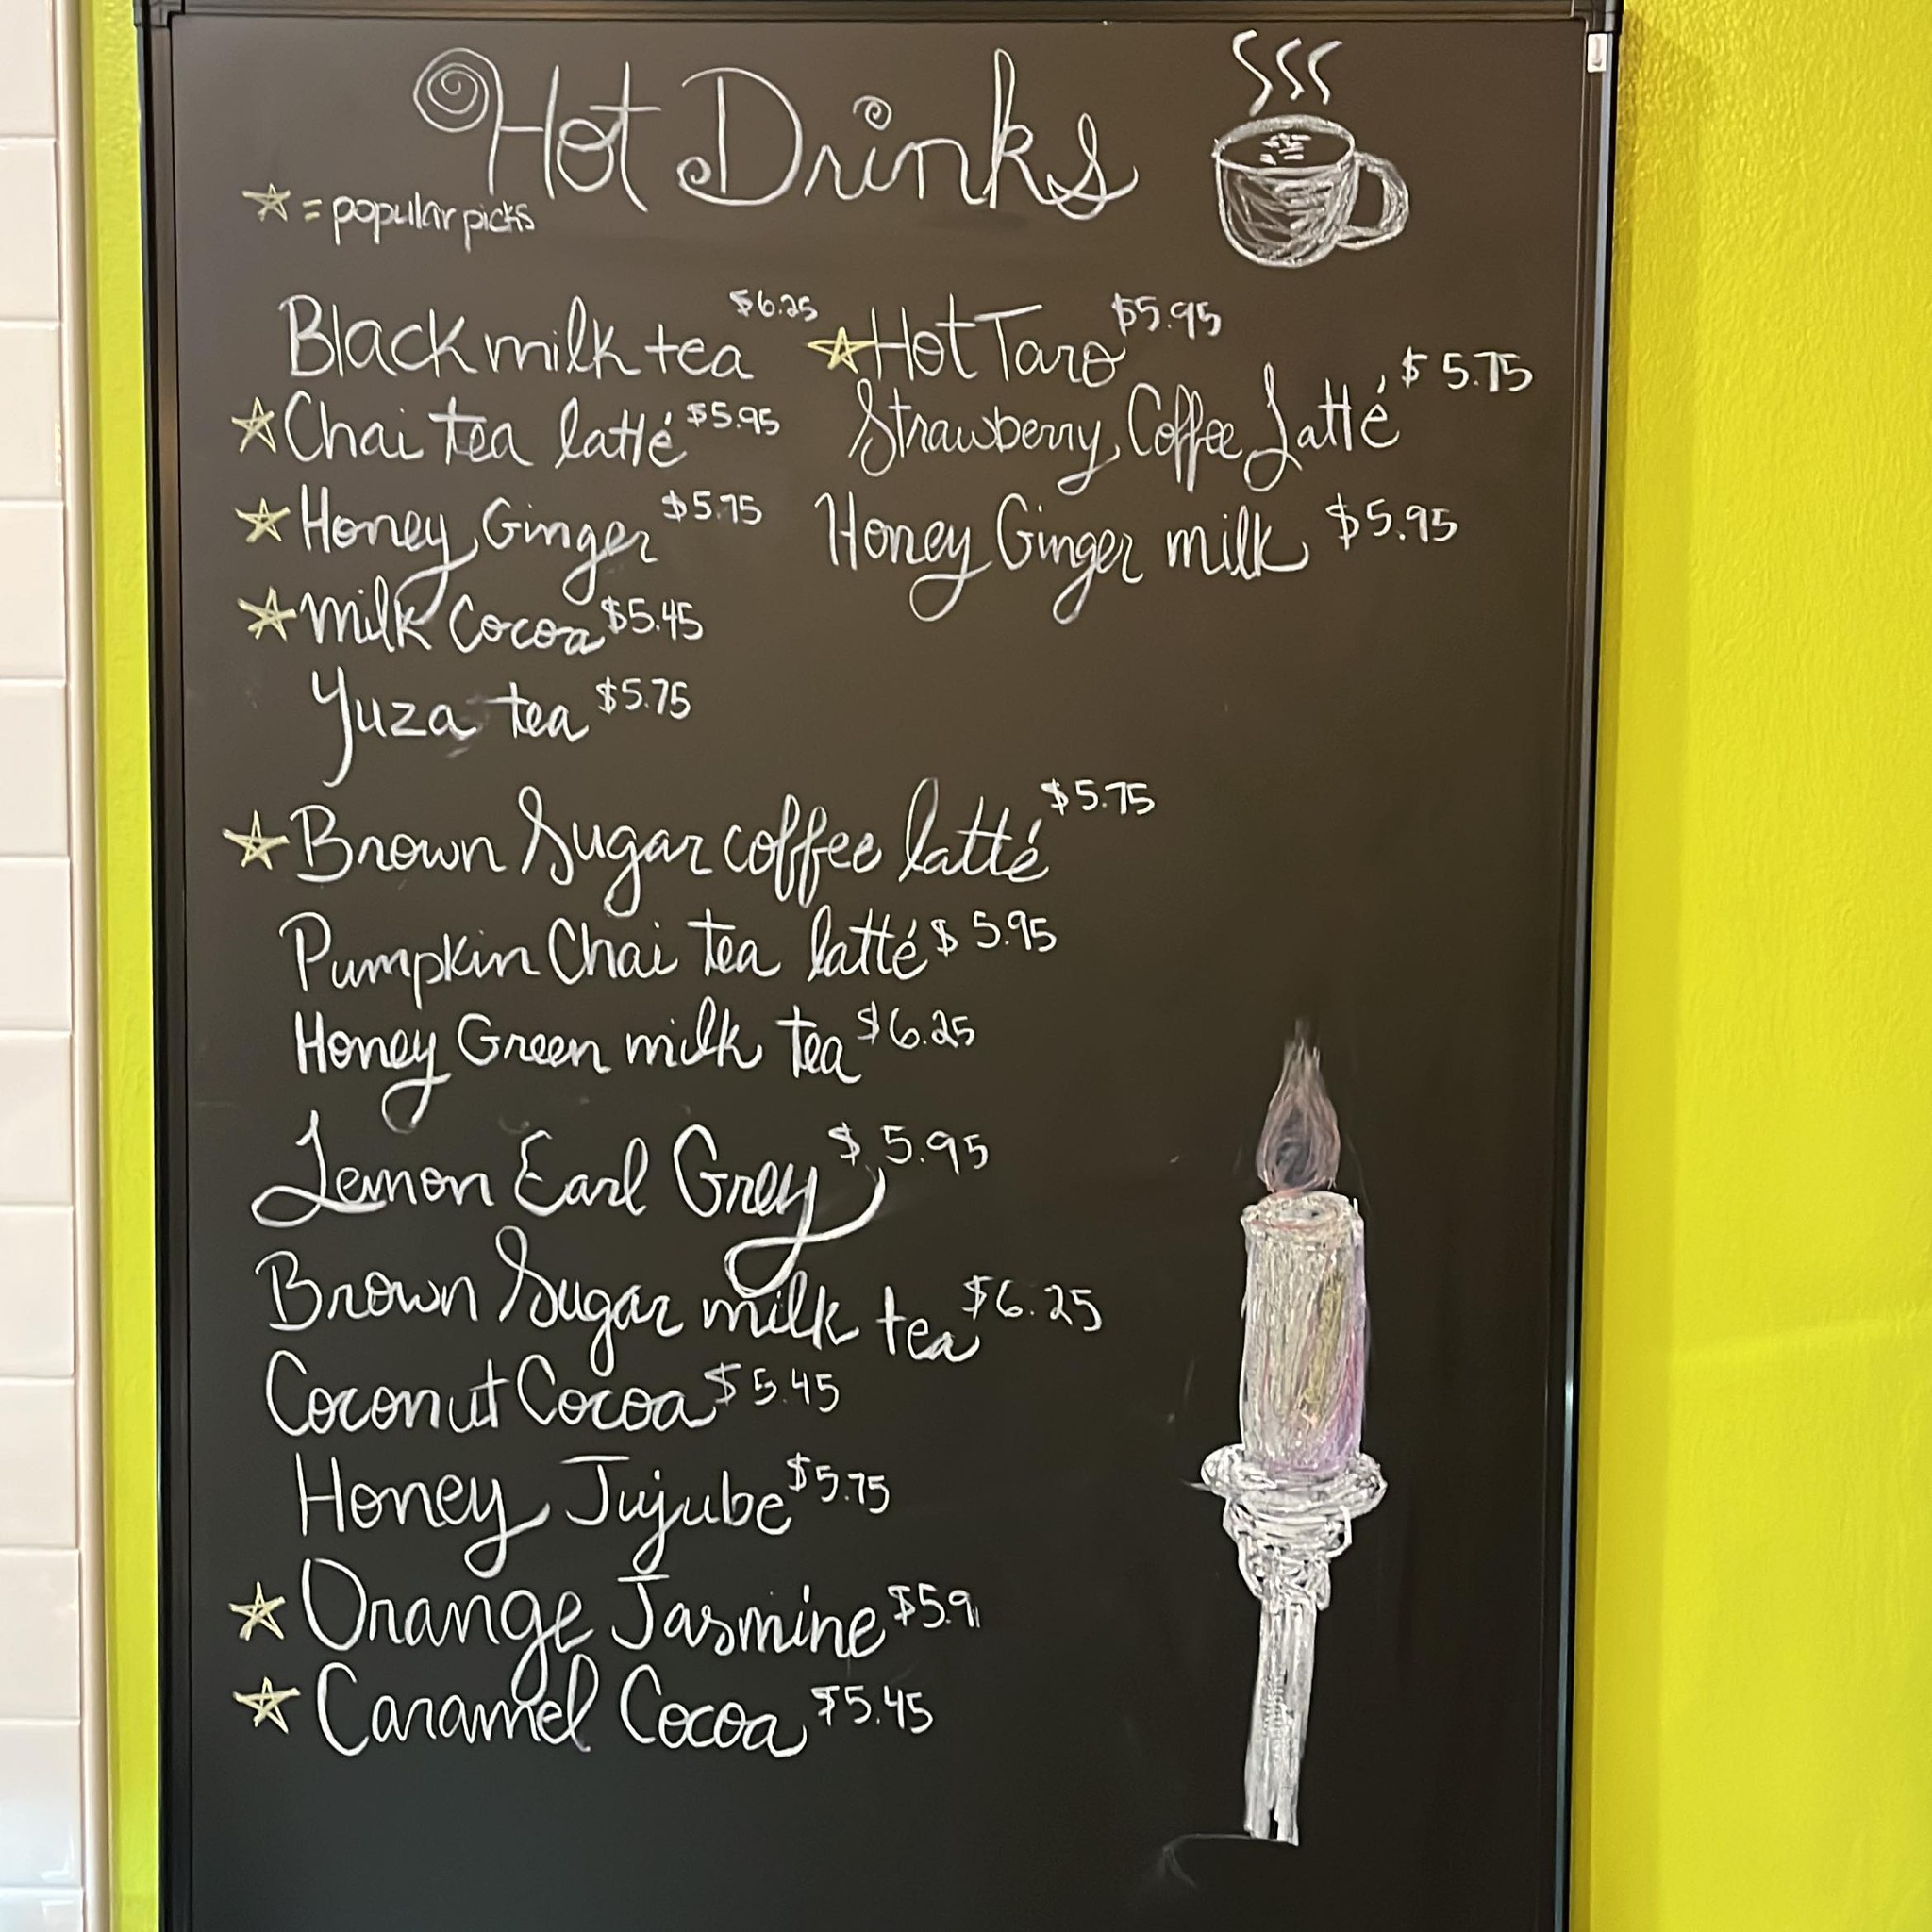 Hot Drinks
☆ = popular picks
Black milk tea $6.25
☆ Chai tea latté $5.95
☆ Honey Ginger $5.75
☆ Milk Cocoa $5.45
Yuza tea $5.75
☆ Hot Taro $5.95
Strawberry Coffee Latté $5.75
Honey Ginger milk $5.95
☆ Brown Sugar coffee latté $5.75
Pumpkin Chai tea latté $5.95
Honey Green milk tea $6.25
Lemon Earl Grey $5.95
Brown Sugar milk tea $6.25
Coconut Cocoa $5.45
Honey Jujube $5.75
☆ Orange Jasmine $5.9
☆ Caramel Cocoa $5.45